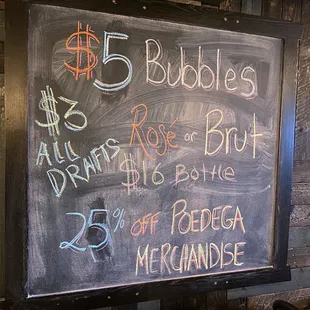 $5 Bubbles
Rosé or Brut
$16 Bottle
$3
ALL
DRAFTS
25% OFF POEDEGA
MERCHANDISE